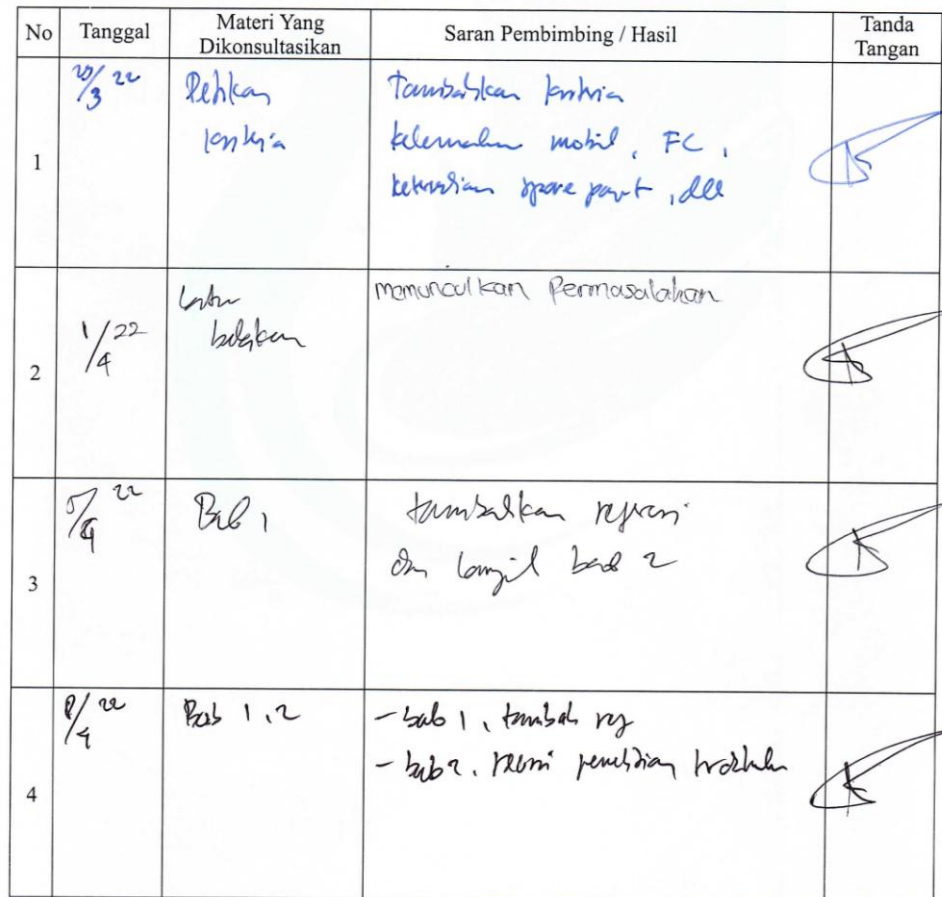 No Tanggal Materi Yang Dikonsultasikan Saran Pembimbing / Hasil Tanda Tangan
1 22 tambahkan
mobil, FC,
spare part, dll
2 1/4 22 latar belakang memunculkan Permasalahan
3 5/4 22 Bab 1 tambahkan referensi
dan lanjut bab 2
4 8/4 22 Bab 1, 2 - bab 1, tambah ref
- bab 2, penelitian terdahulu